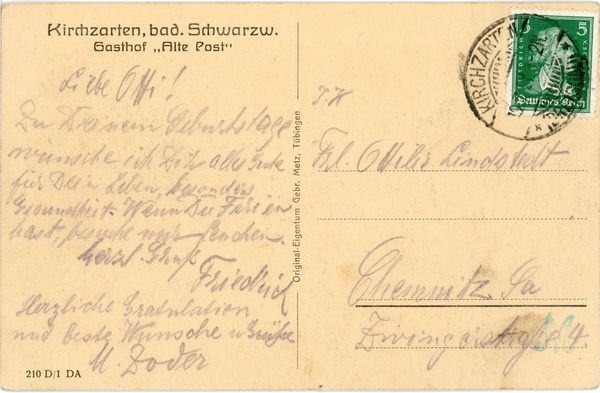 Kirchzarten, bad. Schwarzw.
Gasthof „Alte Post“
Liebe Otti!
Zu Deinem Geburtstage
wünsche ich Dir alles Gute
für Dein Leben, besonders
Gesundheit. Wenn Du Ferien
hast, besuche
herzl. Gruß
Friedrich
Herzliche Gratulation
und beste Wünsche u Grüße
M. Zoder
210 D/1 DA
Original-Eigentum Gebr. Metz, Tübingen
KIRCHZARTEN
5
5
Deutsches Reich
Frl. Ottilie Lindstedt
Chemnitz Sa
Zwingerstraße 4.